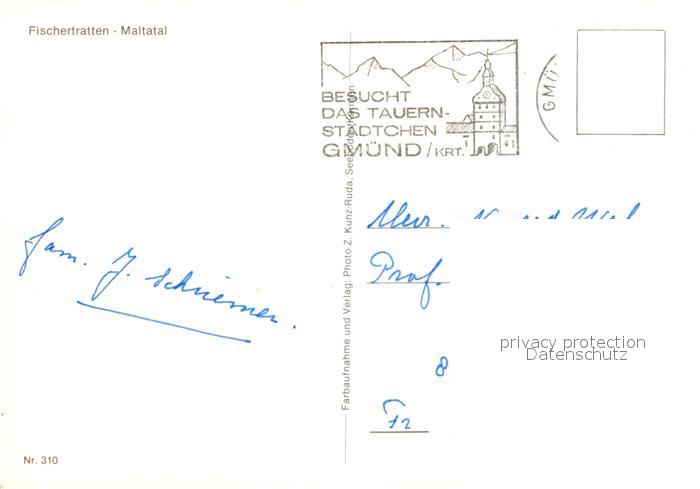 Fischertratten - Maltatal
BESUCHT
DAS TAUERN-
STÄDTCHEN
GMÜND / KRT.
GMÜ
Farbaufnahme und Verlag: Photo Z. Kunz-Ruda, Seeboden/Kärnten
fam. J. Schriemer.
Mevr.
Prof.
8
Fr
privacy protection
Datenschutz
Nr. 310